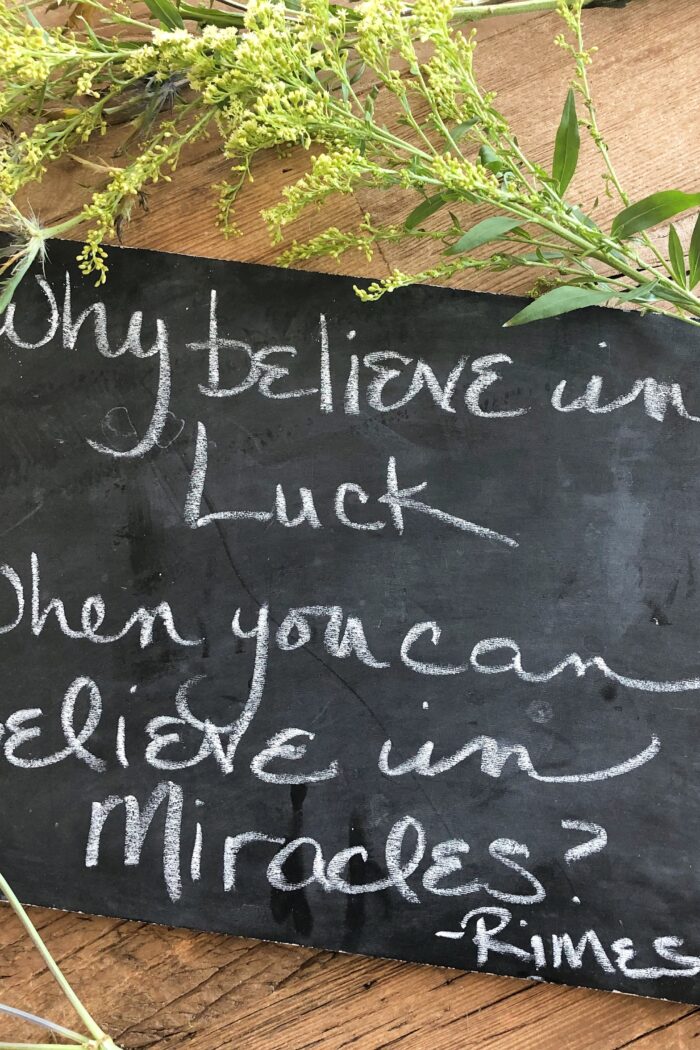 Why believe in
Luck
When you can
believe in
Miracles?
-Rimes